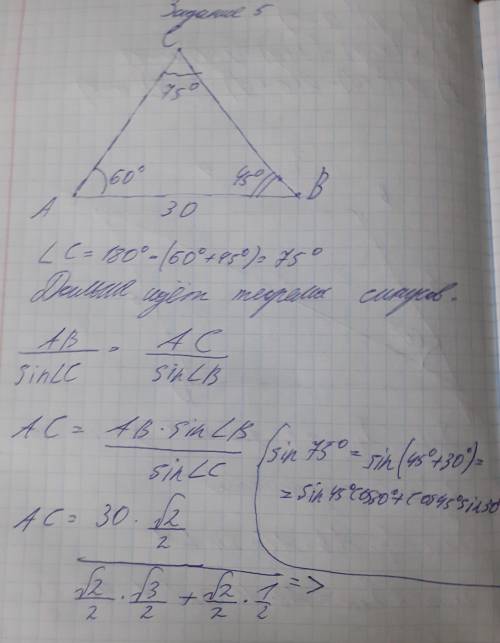 Задание 5
C
75°
60°
45°
A
B
30
∠C = 180° - (60° + 45°) = 75°
Дальше идёт теорема синусов.
AB/sin∠C = AC/sin∠B
AC = AB · sin∠B / sin∠C
sin 75° = sin(45° + 30°) =
= sin 45° cos 30° + cos 45° sin 30°
AC = 30 · √2/2
√2/2 · √3/2 + √2/2 · 1/2 =>